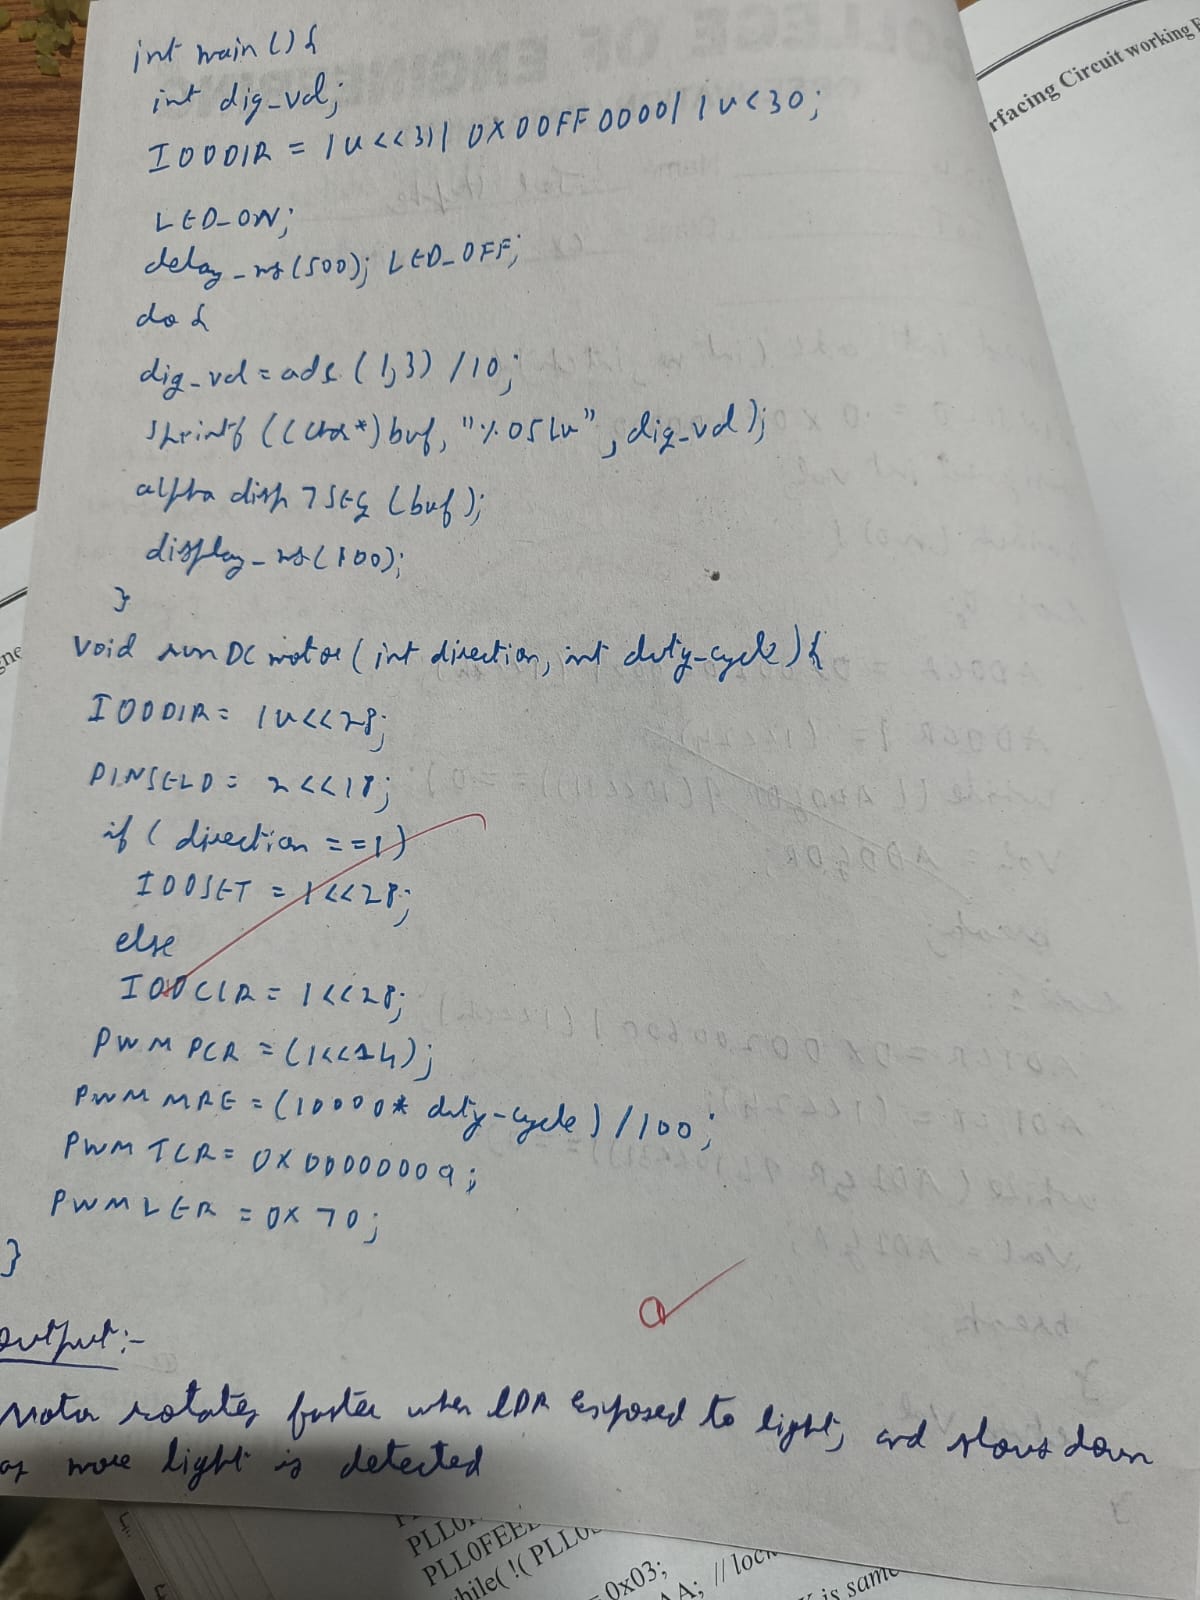 int main () {
int dig_val;
IO0DIR = 1u<<31| 0X00FF0000| 1u<30;
LED_ON;
delay_ms(500); LED_OFF;
do {
dig_val = adc (1,3) /10;
sprintf ((char*) buf, "%05lu", dig_val);
alpha disp 7SEG (buf);
display_ms(100);
}
void run DC motor (int direction, int duty-cycle) {
IO0DIR = 1u<<28;
PINSEL0 = 2<<18;
if ( direction ==1)
IO0SET = 1<<28;
else
IO0CLR = 1<<28;
PWM PCR = (1<<14);
PWM MRE = (10000* duty-cycle) /100;
PWM TCR = 0X00000009;
PWM LER = 0X 70;
}
Output:-
Motor rotates faster when LDR Exposed to light, and slows down
as more light is detected
rfacing Circuit working
gne
PLL0FEE
while( !( PLL0
0x03;
AA; // loc
is same